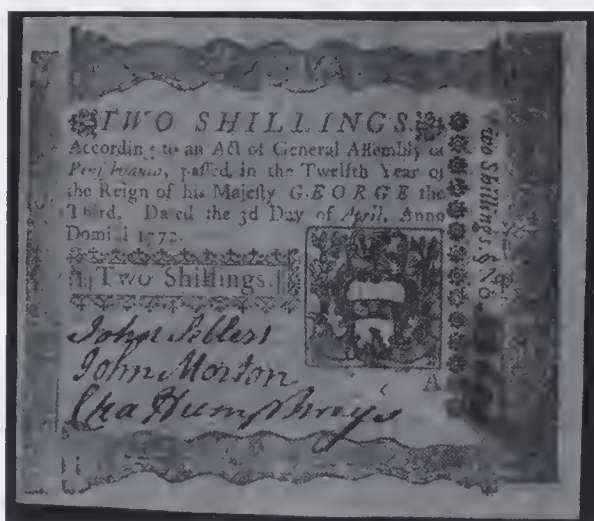 TWO SHILLINGS.
According to an Act of General Assembly of
Pensylvania, passed in the Twelfth Year of
the Reign of his Majesty GEORGE the
Third. Dated the 3d Day of April, Anno
Domini 1772.
Two Shillings.
John Sellers
John Morton
Cha Humphreys
A
Two Shillings. § No.